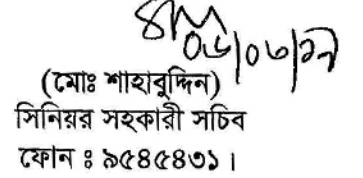 (মোঃ শাহাবুদ্দিন)
সিনিয়র সহকারী সচিব
ফোন ঃ ৯৫৪৫৪৩১।